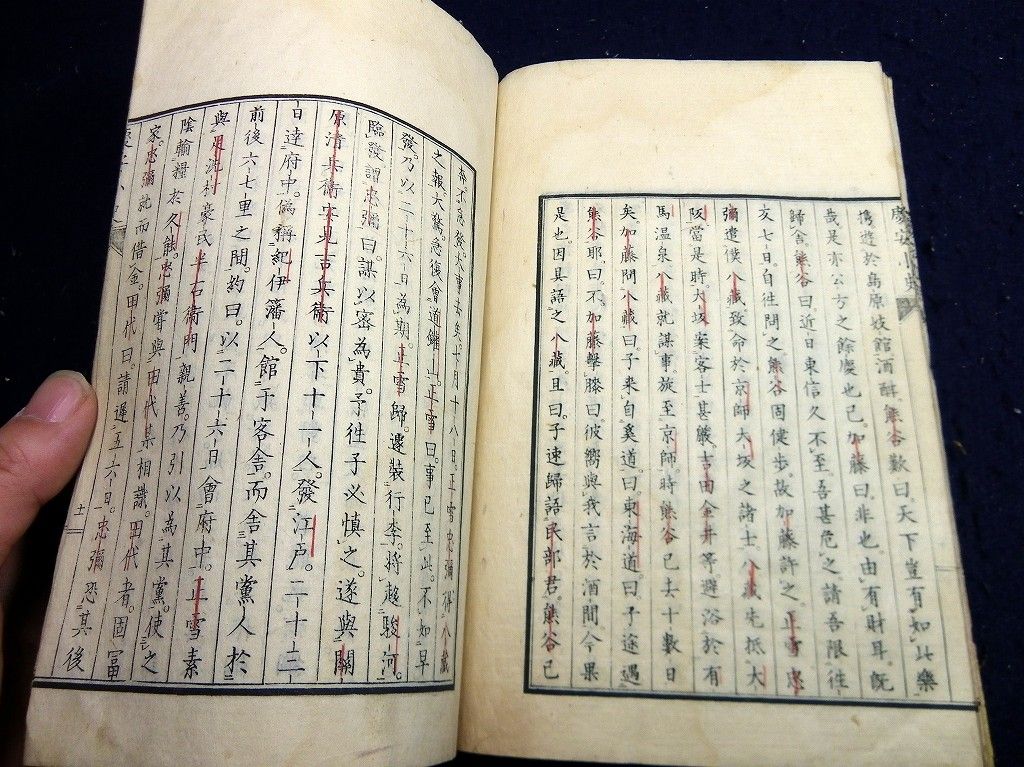 携遊於島原妓館酒酣。熊谷歎曰。天下豈有知此樂
哉。是亦公方之餘慶也已。加藤曰。非也。由有財耳。既
歸舍。熊谷曰。近日東信久不至。吾甚危之。請吾限往
亥七日。自往問之。熊谷固健歩。故加藤許之。正雪忠
彌遣僕八藏。致命於京師大坂之諸士。八藏先抵大
阪。當是時。大坂案客士甚嚴。吉田金井等避浴於有
馬温泉。八藏就謀事。旋至京師。時熊谷已去十數日
矣。加藤問八藏曰。子来自奚道。曰。東海道。曰。子途遇
熊谷耶。曰。不。加藤擊膝曰。彼嚮與我言於酒間。今果
是也。因具語之八藏。且曰。子速歸語民部君。熊谷已
不急發。大事去矣。七月十八日。正雪忠彌得八藏
之報。大驚。急復會道。正雪曰。事已至此。不如早
發。乃以二十六日為期。正雪歸。遽装行李。將趨駿河。
臨發謂忠彌曰。謀以密為貴。予往子必慎之。遂與關
原清兵衛安見吉兵衛以下十一人。發江戸。二十三
日達府中。偽稱紀伊藩人。館于客舍。而舍其黨人於
前後六七里之間。約曰。以二十六日會府中。正雪素
與足洗村豪民半右衛門親善。乃引以為其黨。使之
陰輸糧於久能。忠彌嘗與田代某相識。田代者。固冨
家。忠彌就而借金。田代曰。請遲五六日。忠彌恐其後
十一